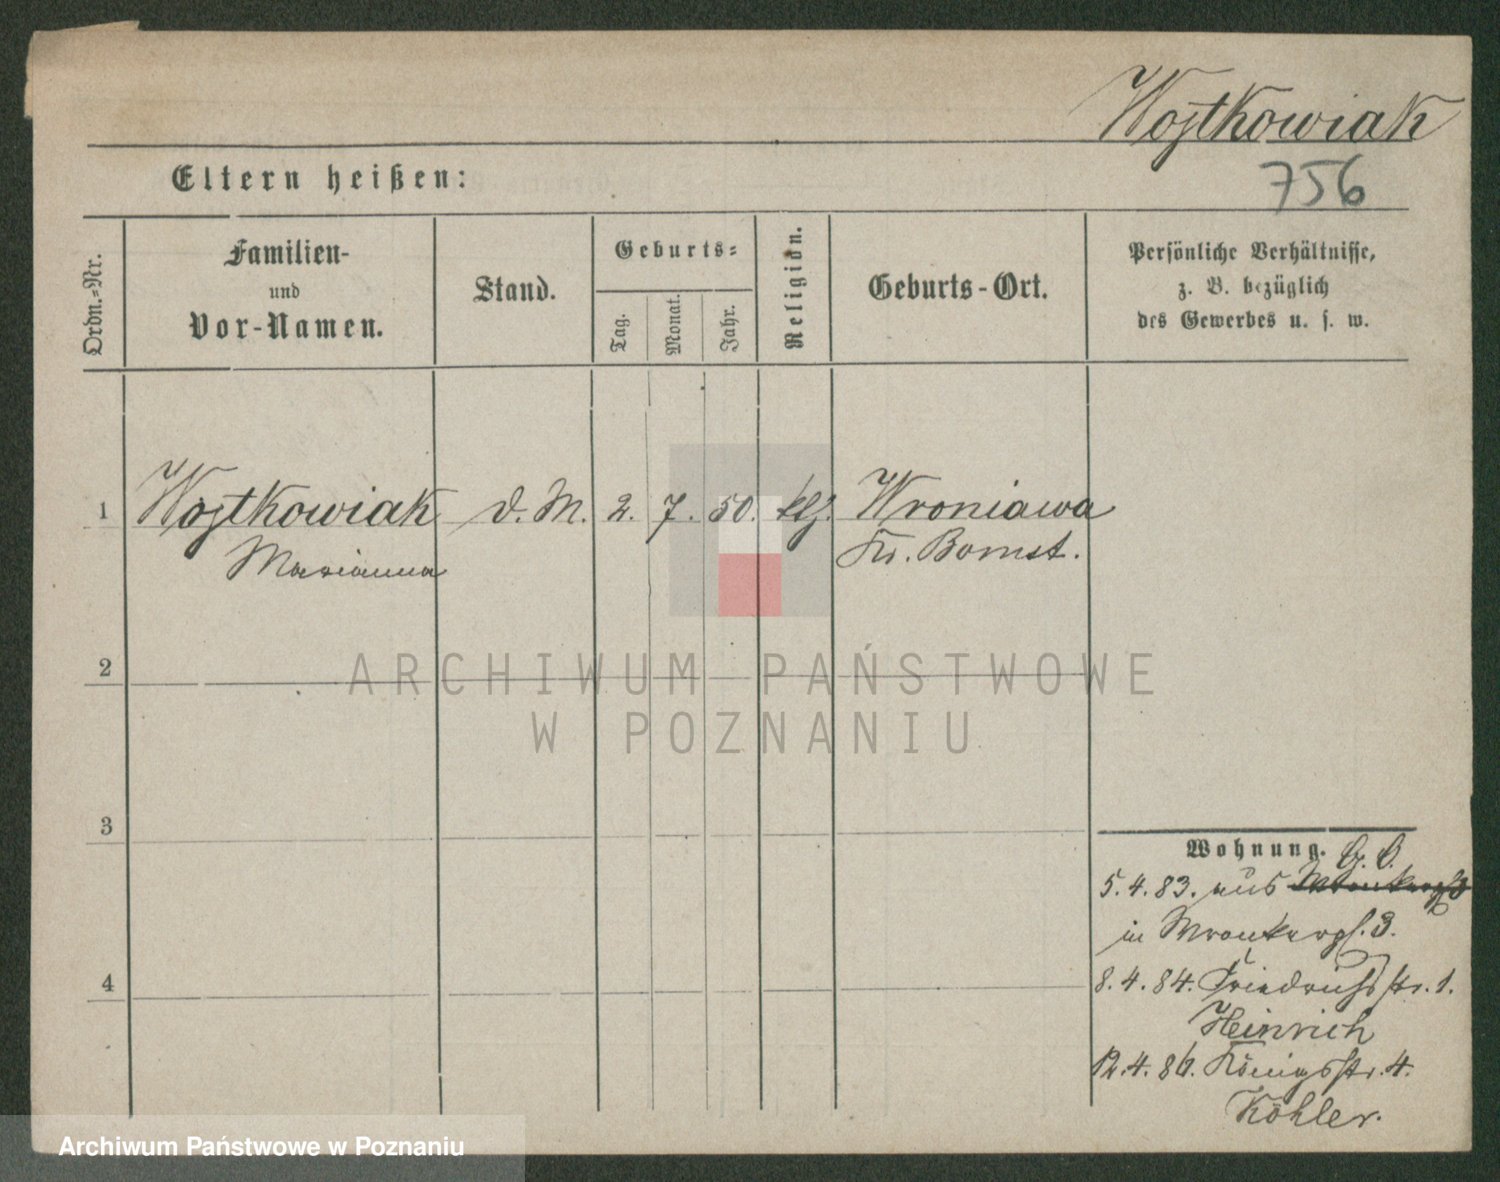 Wojtkowiak
756
Eltern heißen:
Ordn.-Nr.
Familien-
und
Vor-Namen.
Stand.
Geburts-
Tag.
Monat.
Jahr.
Religion.
Geburts-Ort.
Persönliche Verhältnisse,
z. B. bezüglich
des Gewerbes u. s. w.
1 Wojtkowiak d. M. 2. 7. 50. Wroniawa
Marianna Kr. Bomst.
2
ARCHIWUM PAŃSTWOWE
W POZNANIU
3
Wohnung.
5.4.83. aus
in Wronkergs. 3.
4
8.4.84. Friedrichsstr. 1.
Heinrich
12.4.86. Königsstr. 4.
Köhler.
Archiwum Państwowe w Poznaniu